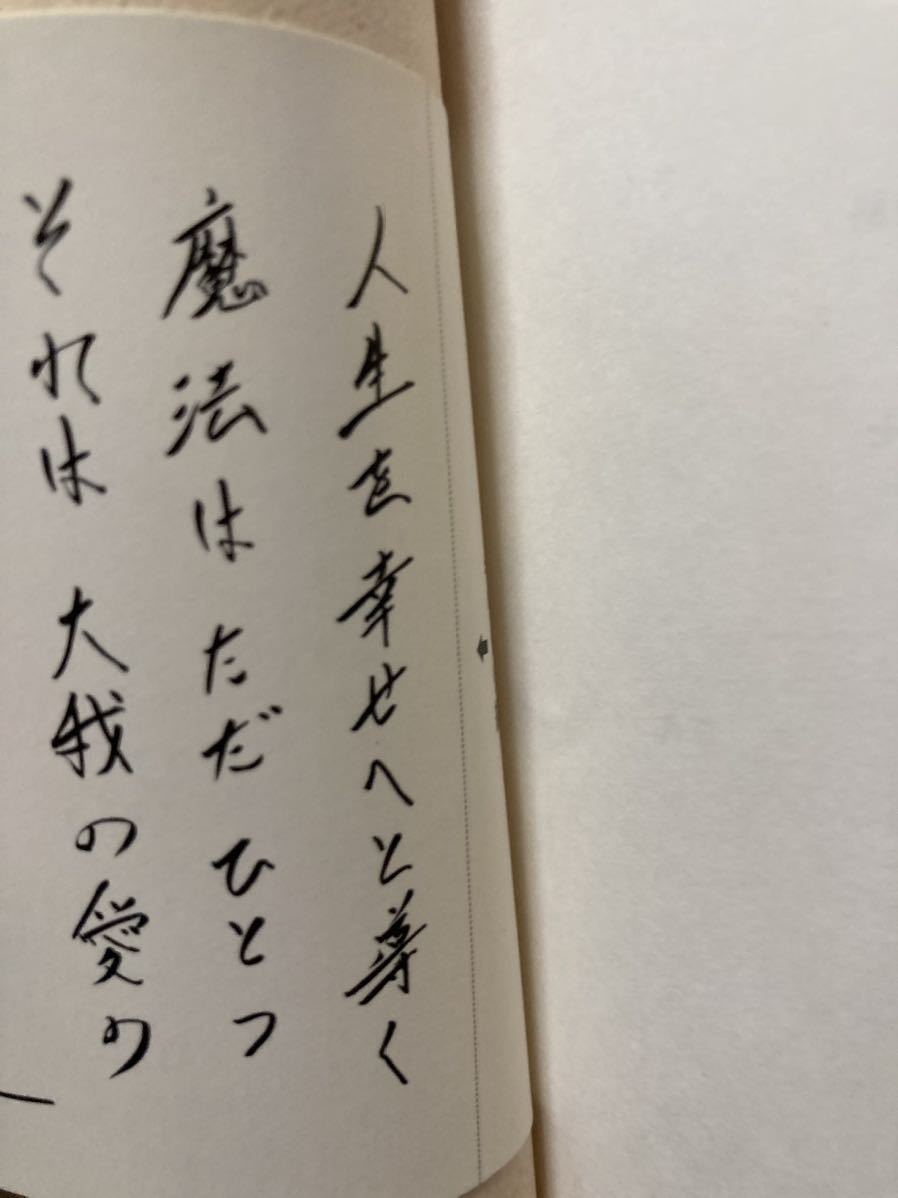 人生を幸せへと導く
魔法はただひとつ
それは大我の愛の